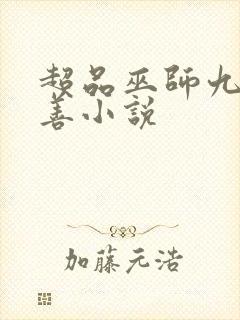 超品巫師九
善小說
加藤元浩